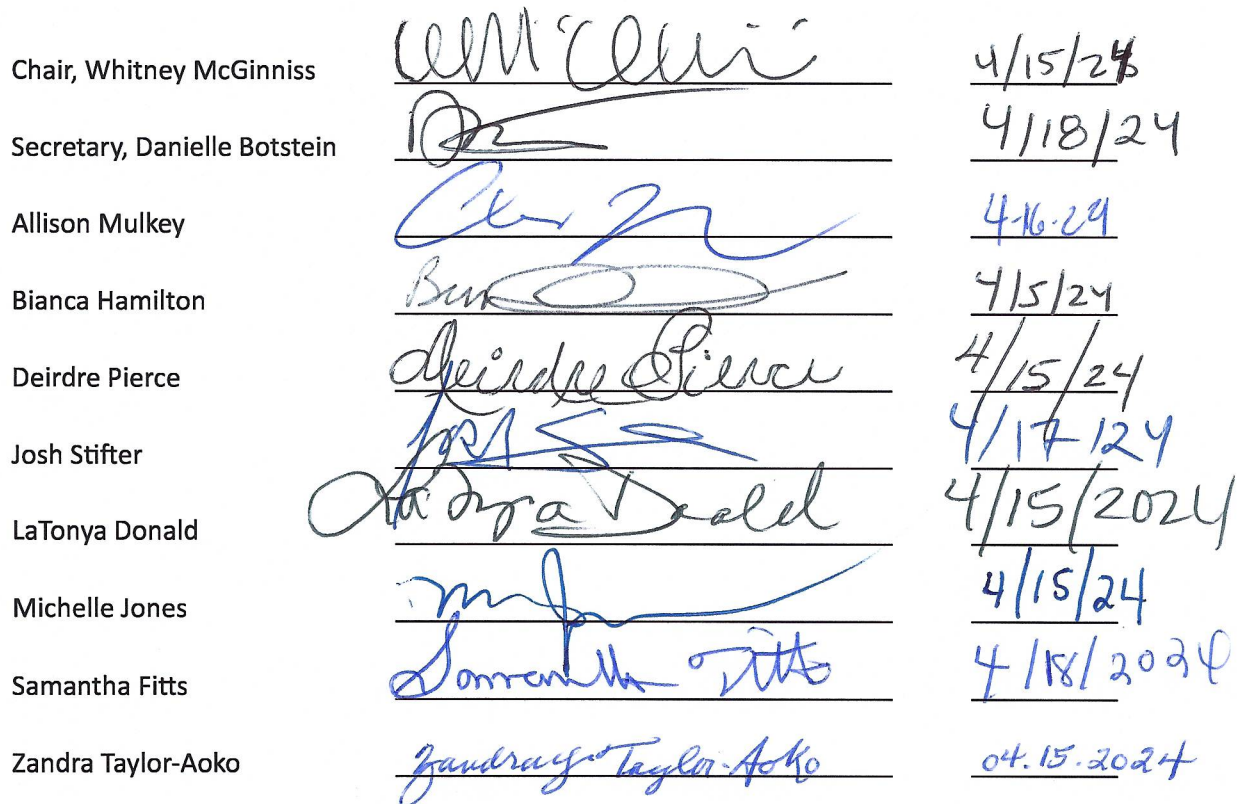 Chair, Whitney McGinniss 4/15/24
Secretary, Danielle Botstein 4/18/24
Allison Mulkey 4-16-24
Bianca Hamilton 4/5/24
Deirdre Pierce Deirdre Pierce 4/15/24
Josh Stifter 4/17/24
LaTonya Donald LaTonya Donald 4/15/2024
Michelle Jones 4/15/24
Samantha Fitts Samantha Fitts 4/18/2024
Zandra Taylor-Aoko Taylor-Aoko 04.15.2024